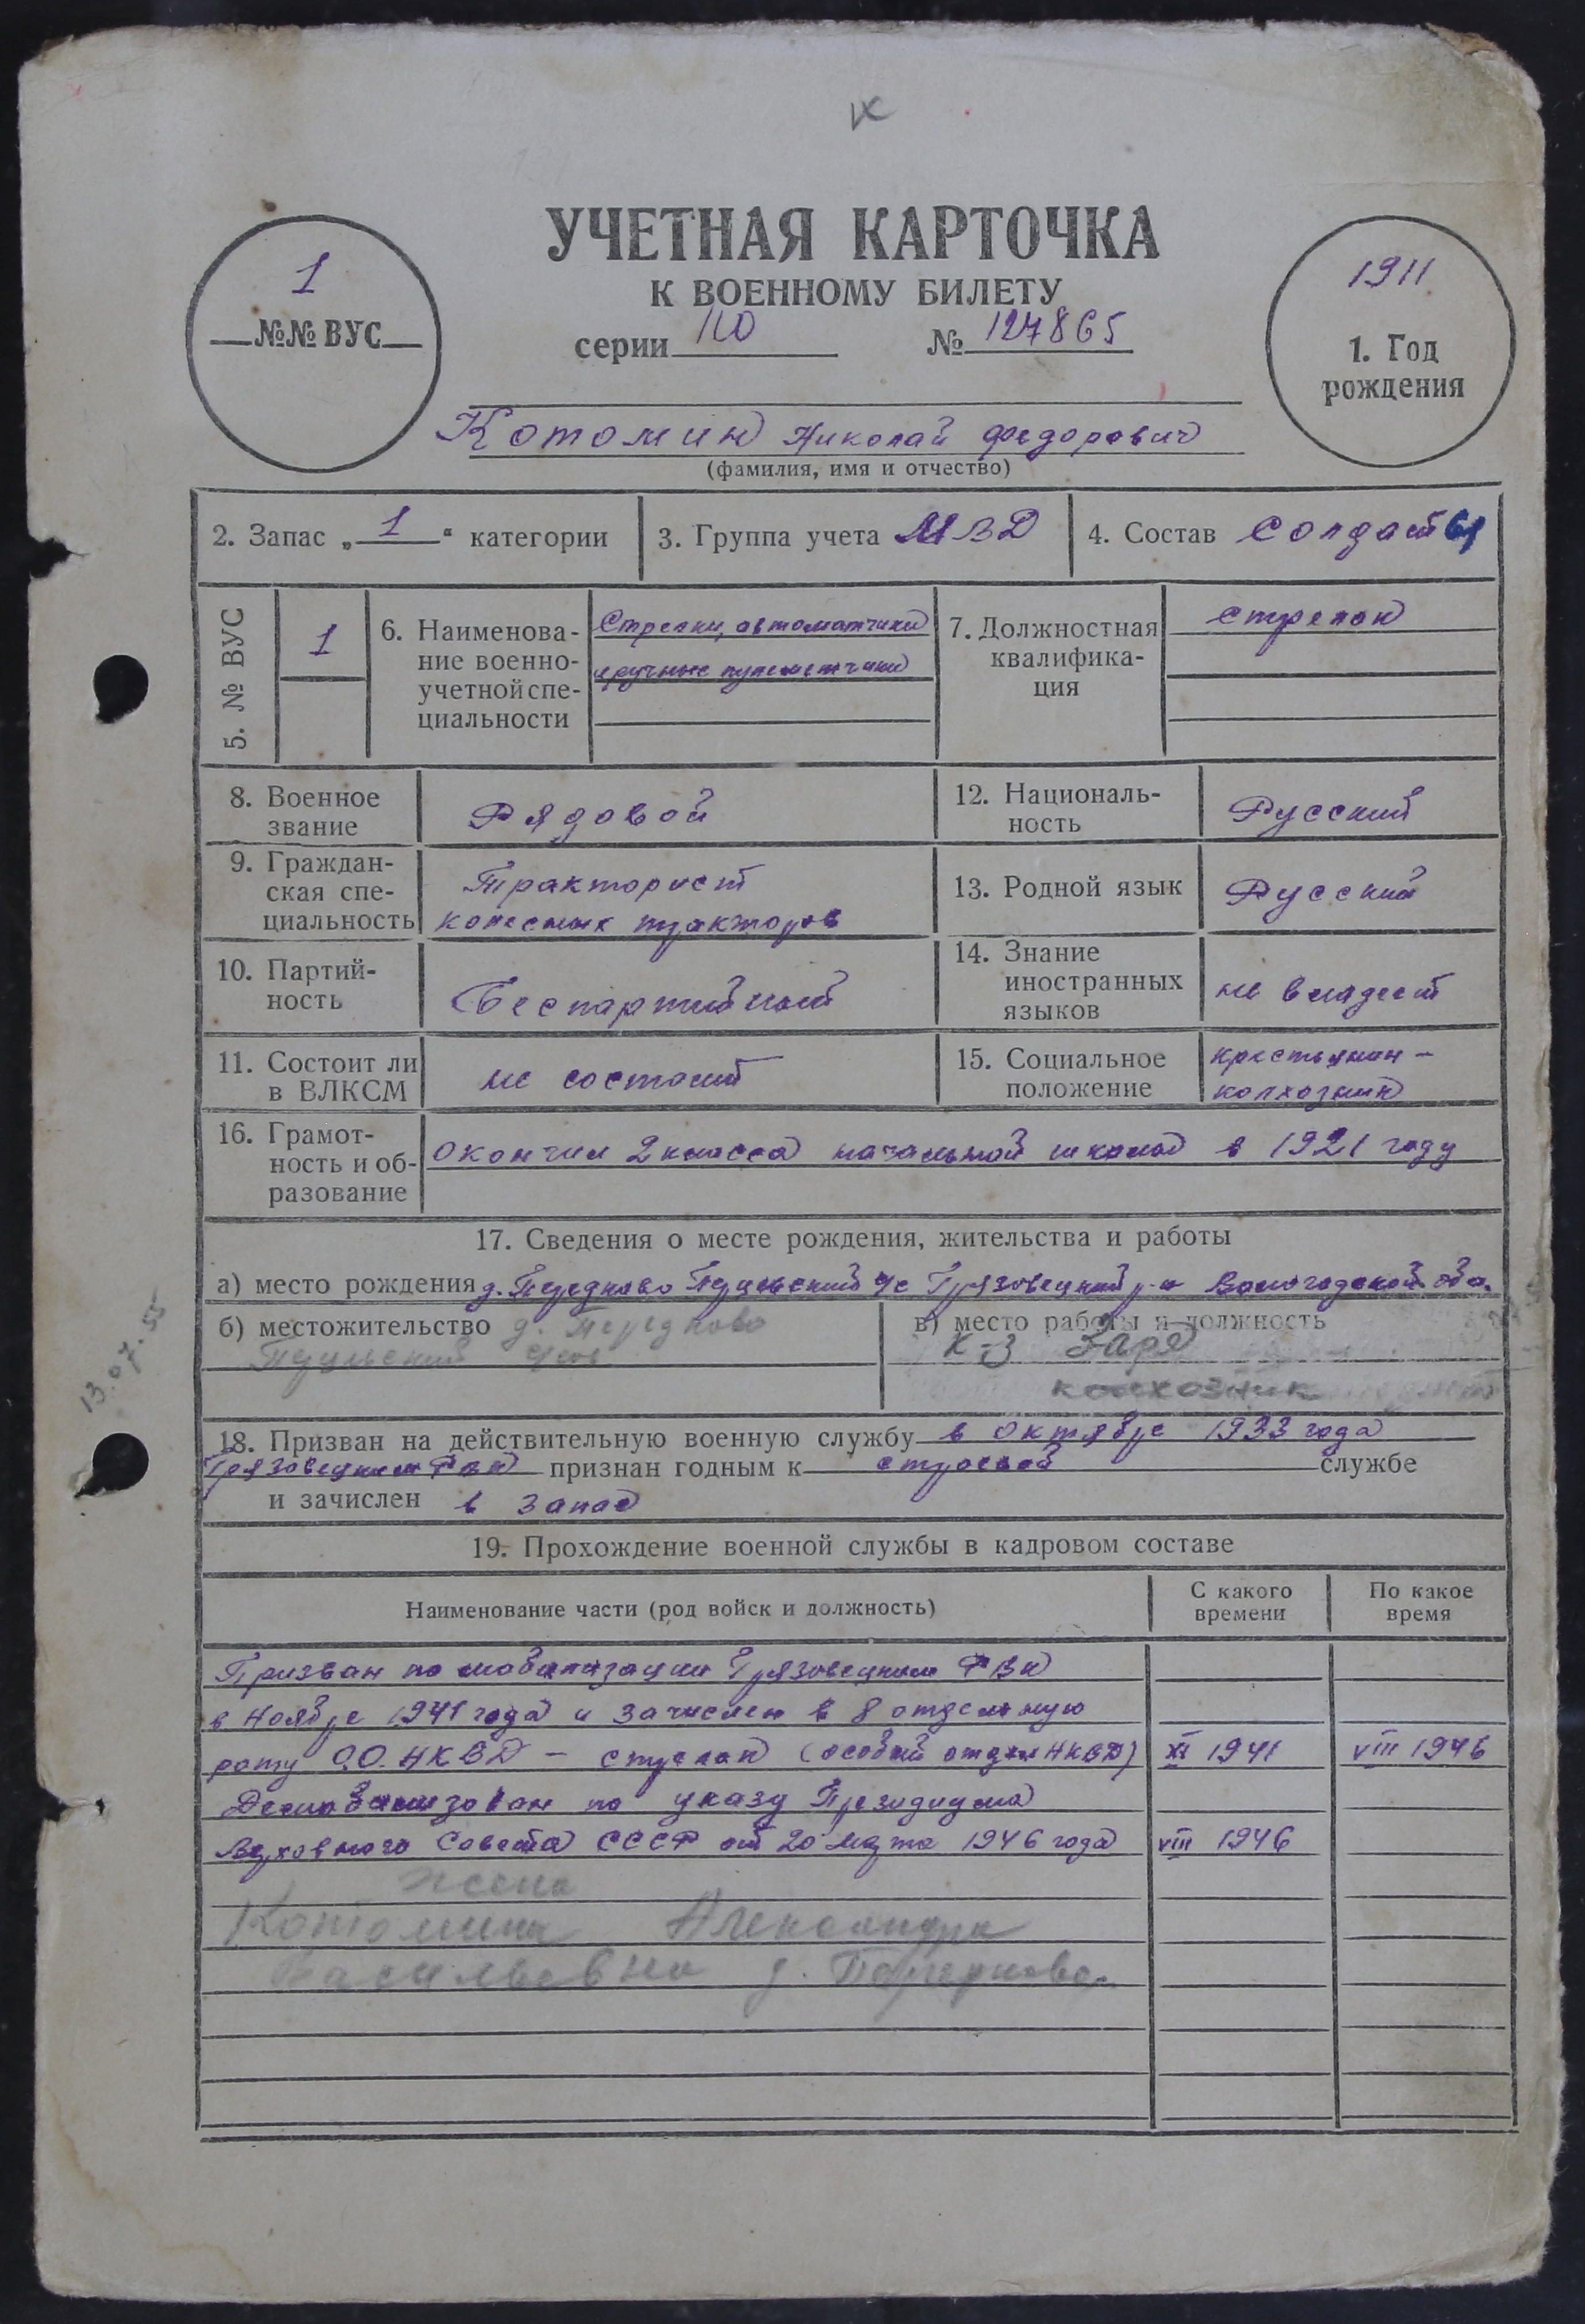 УЧЕТНАЯ КАРТОЧКА
К ВОЕННОМУ БИЛЕТУ
серии № 127865
1
№№ ВУС
1911
1. Год
рождения
Котомин Николай Федорович
(фамилия, имя и отчество)
2. Запас „ 1 “ категории
3. Группа учета МВД
4. Состав Солдат
5. № ВУС
1
6. Наименова-
ние военно-
учетной спе-
циальности
Стрелки, автоматчики
и ручные пулеметчики
7. Должностная
квалифика-
ция
Стрелок
8. Военное
звание
Рядовой
12. Националь-
ность
Русский
9. Граждан-
ская спе-
циальность
Тракторист
колесных тракторов
13. Родной язык Русский
10. Партий-
ность
Беспартийный
14. Знание
иностранных
языков
не владеет
11. Состоит ли
в ВЛКСМ
не состоит
15. Социальное
положение
крестьянин –
колхозник
16. Грамот-
ность и об-
разование
Окончил 2 класса начальной школы в 1921 году
17. Сведения о месте рождения, жительства и работы
а) место рождения д. Передково с/с Грязовецкий р-н Вологодской обл.
б) местожительство д. Передково
в) место работы и должность
к-з Заря
колхозник
13.07.55
18. Призван на действительную военную службу в октябре 1933 года
Грязовецким РВК признан годным к строевой службе
и зачислен в запас
19. Прохождение военной службы в кадровом составе
Наименование части (род войск и должность)
С какого
времени
По какое
время
Призван по мобилизации Грязовецким РВК
в Ноябре 1941 года и зачислен в 8 отдельную
роту О.О. НКВД – стрелок (особый отдел НКВД) XI 1941 VIII 1946
Демобилизован по указу Президиума
Верховного Совета СССР от 20 марта 1946 года VIII 1946
жена
Котомина Александра
Васильевна д.